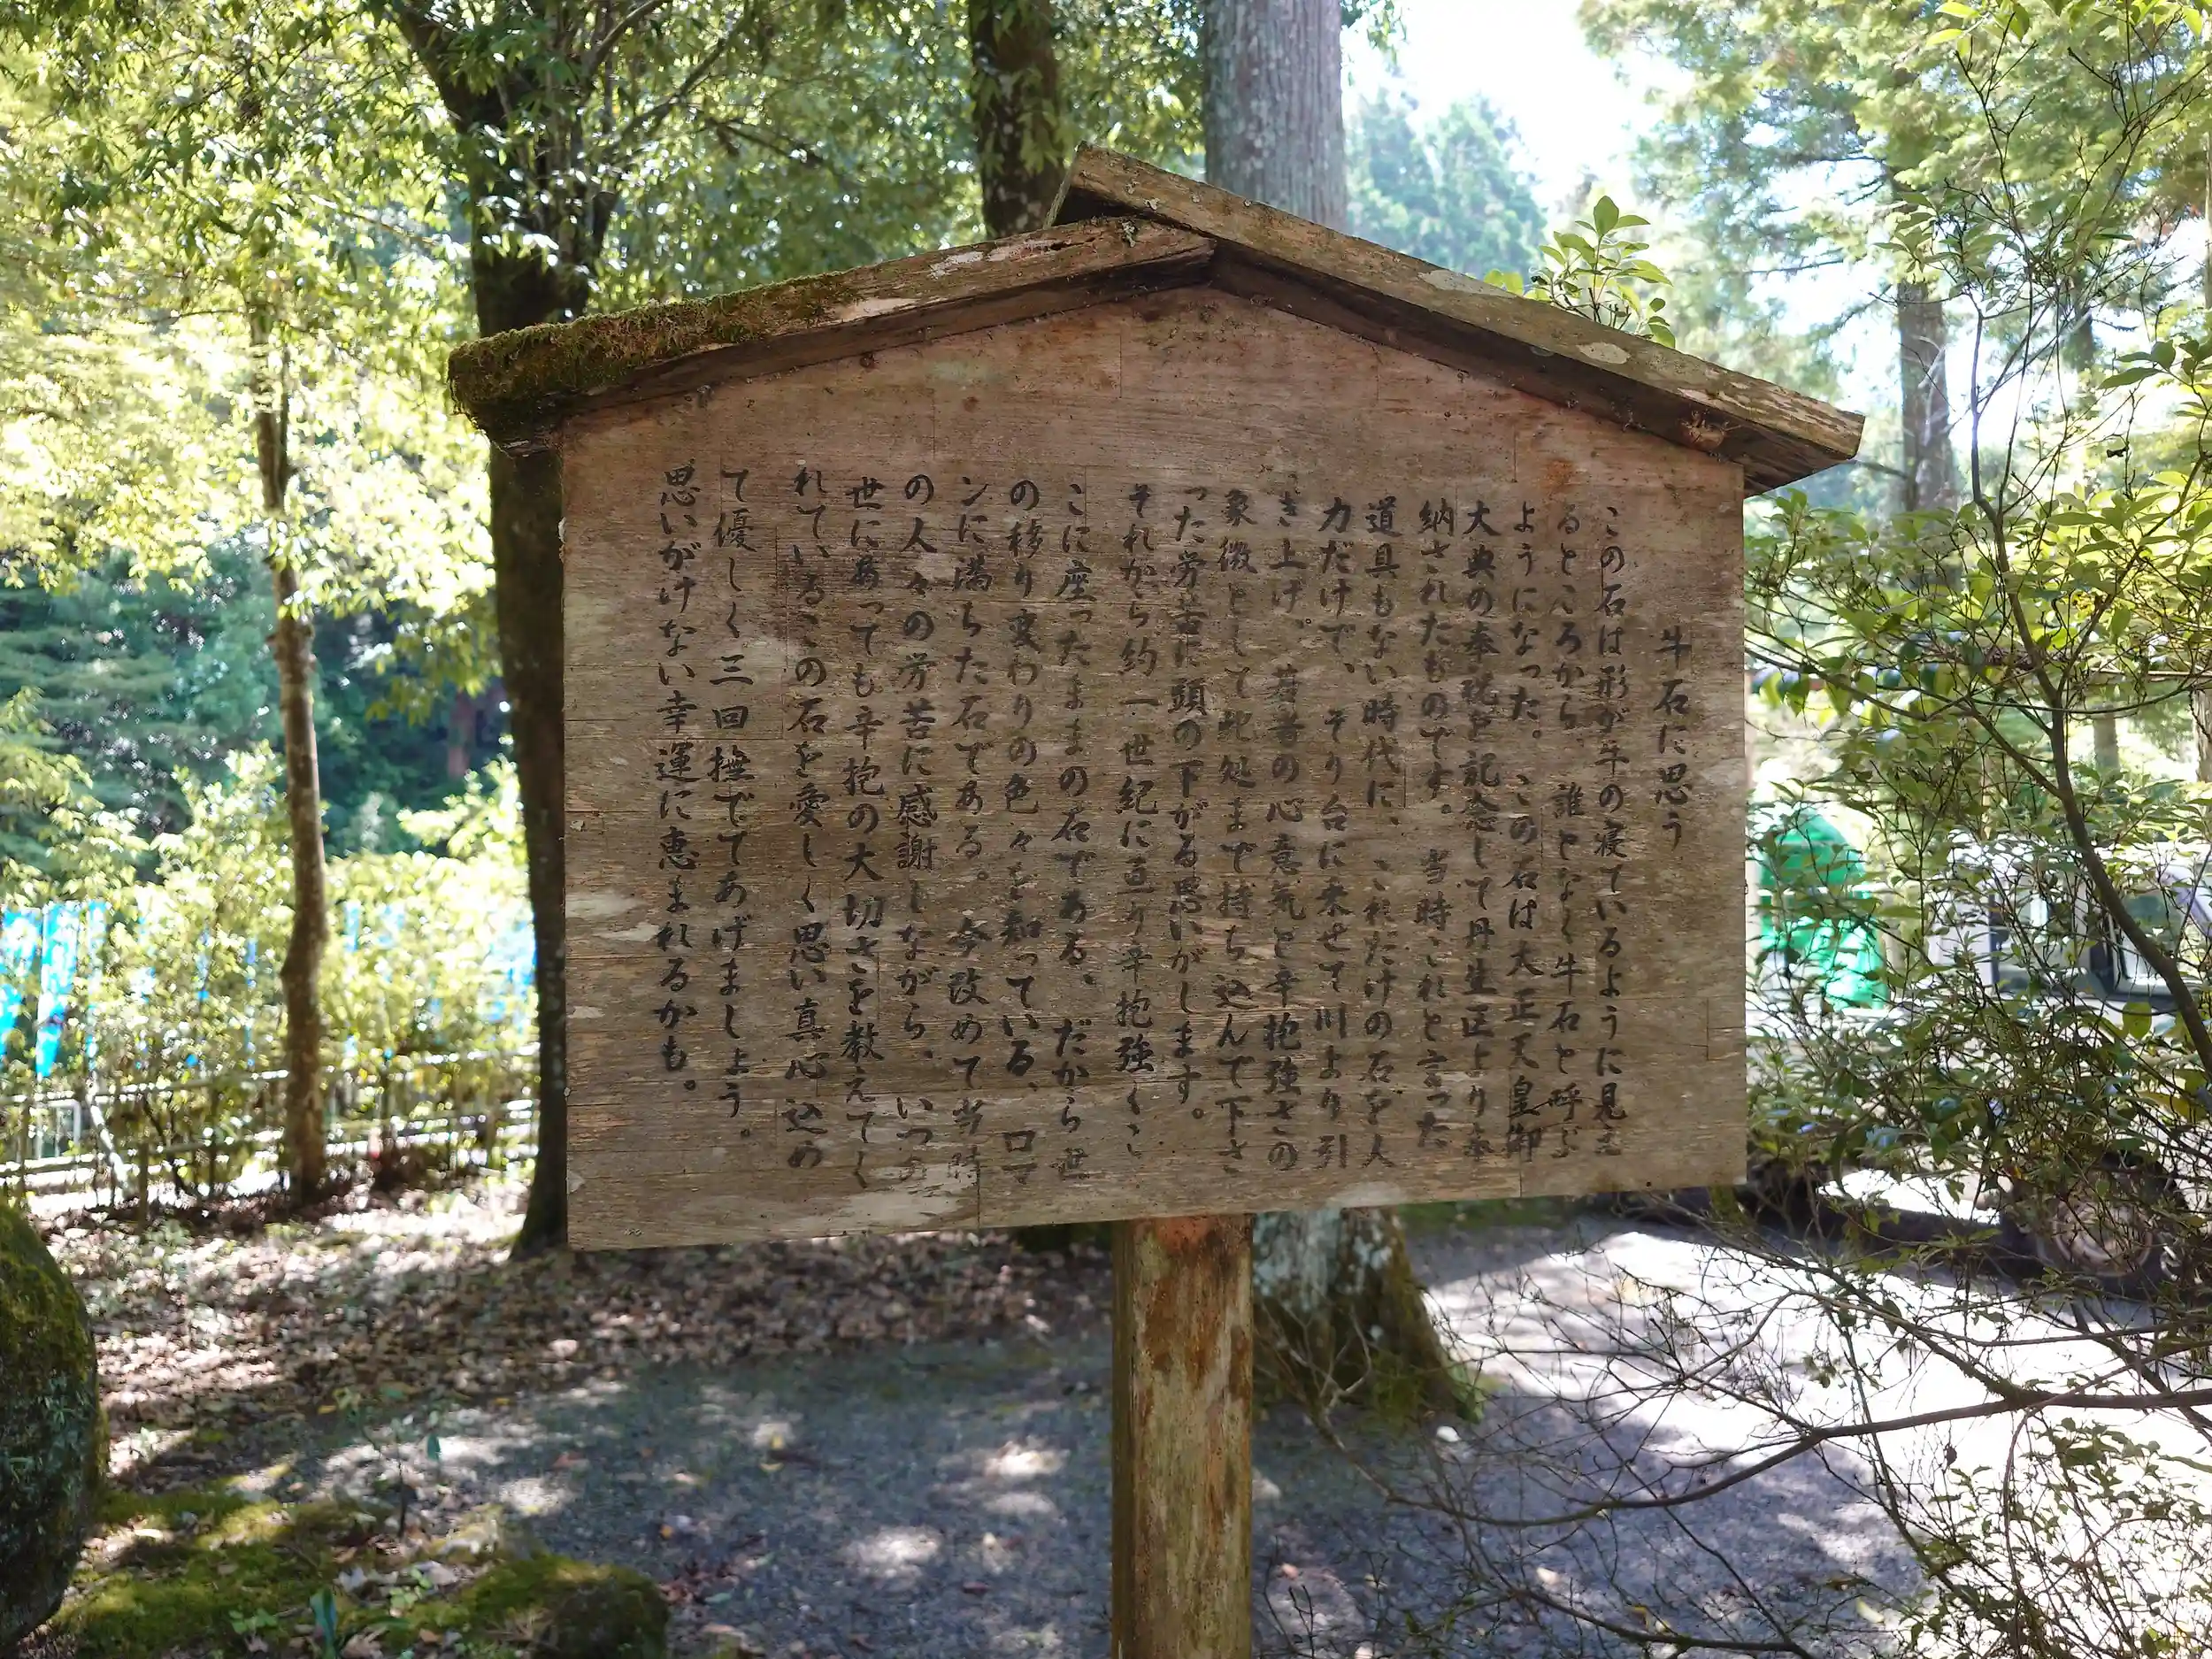 牛石に思う
この石は形が牛の寝ているように見え
るところから、誰となく牛石と呼ぶ
ようになった。この石は大正天皇御
大典の奉祝を記念して丹生区より奉
納されたものです。当時これと言った
道具もない時代に、これだけの石を人
力だけで、そり台に乗せて川より引
き上げ。若者の心意気と辛抱強さの
象徴として此処まで持ち込んで下さ
った労苦に頭の下がる思いがします。
それから約一世紀に亘り辛抱強くこ
こに座ったままの石である、だから世
の移り変わりの色々を知っている、ロマ
ンに満ちた石である。今改めて当時
の人々の労苦に感謝しながら、いつの
世にあっても辛抱の大切さを教えてく
れているこの石を愛しく思い真心込め
て優しく三回撫でてあげましょう。
思いがけない幸運に恵まれるかも。